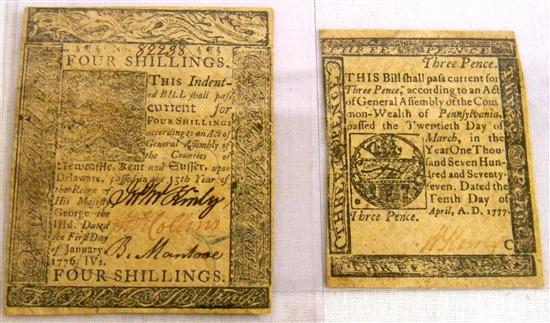 No. 82238
FOUR SHILLINGS.
THIS Indent-
ed BILL shall pass
current for
FOUR SHILLINGS
according to an Act of
General Assembly of
the Counties of
Newcastle, Kent and Sussex, upon
Delaware, passed in the 15th Year of
the Reign of
His Majesty
George the
IIId. Dated
the First Day
of January,
1776. IVs.
FOUR SHILLINGS.
Collins
B. Manlove
THREE PENCE
Three Pence.
THIS Bill shall pass current for
Three Pence, according to an Act
of General Assembly of the Com
mon-Wealth of Pennsylvania,
passed the Twentieth Day of
March, in the
Year One Thou
sand Seven Hun
dred and Seventy-
seven. Dated the
Tenth Day of
April, A. D. 1777.
THREE PENCE
Three Pence.
C
THREE PENCE